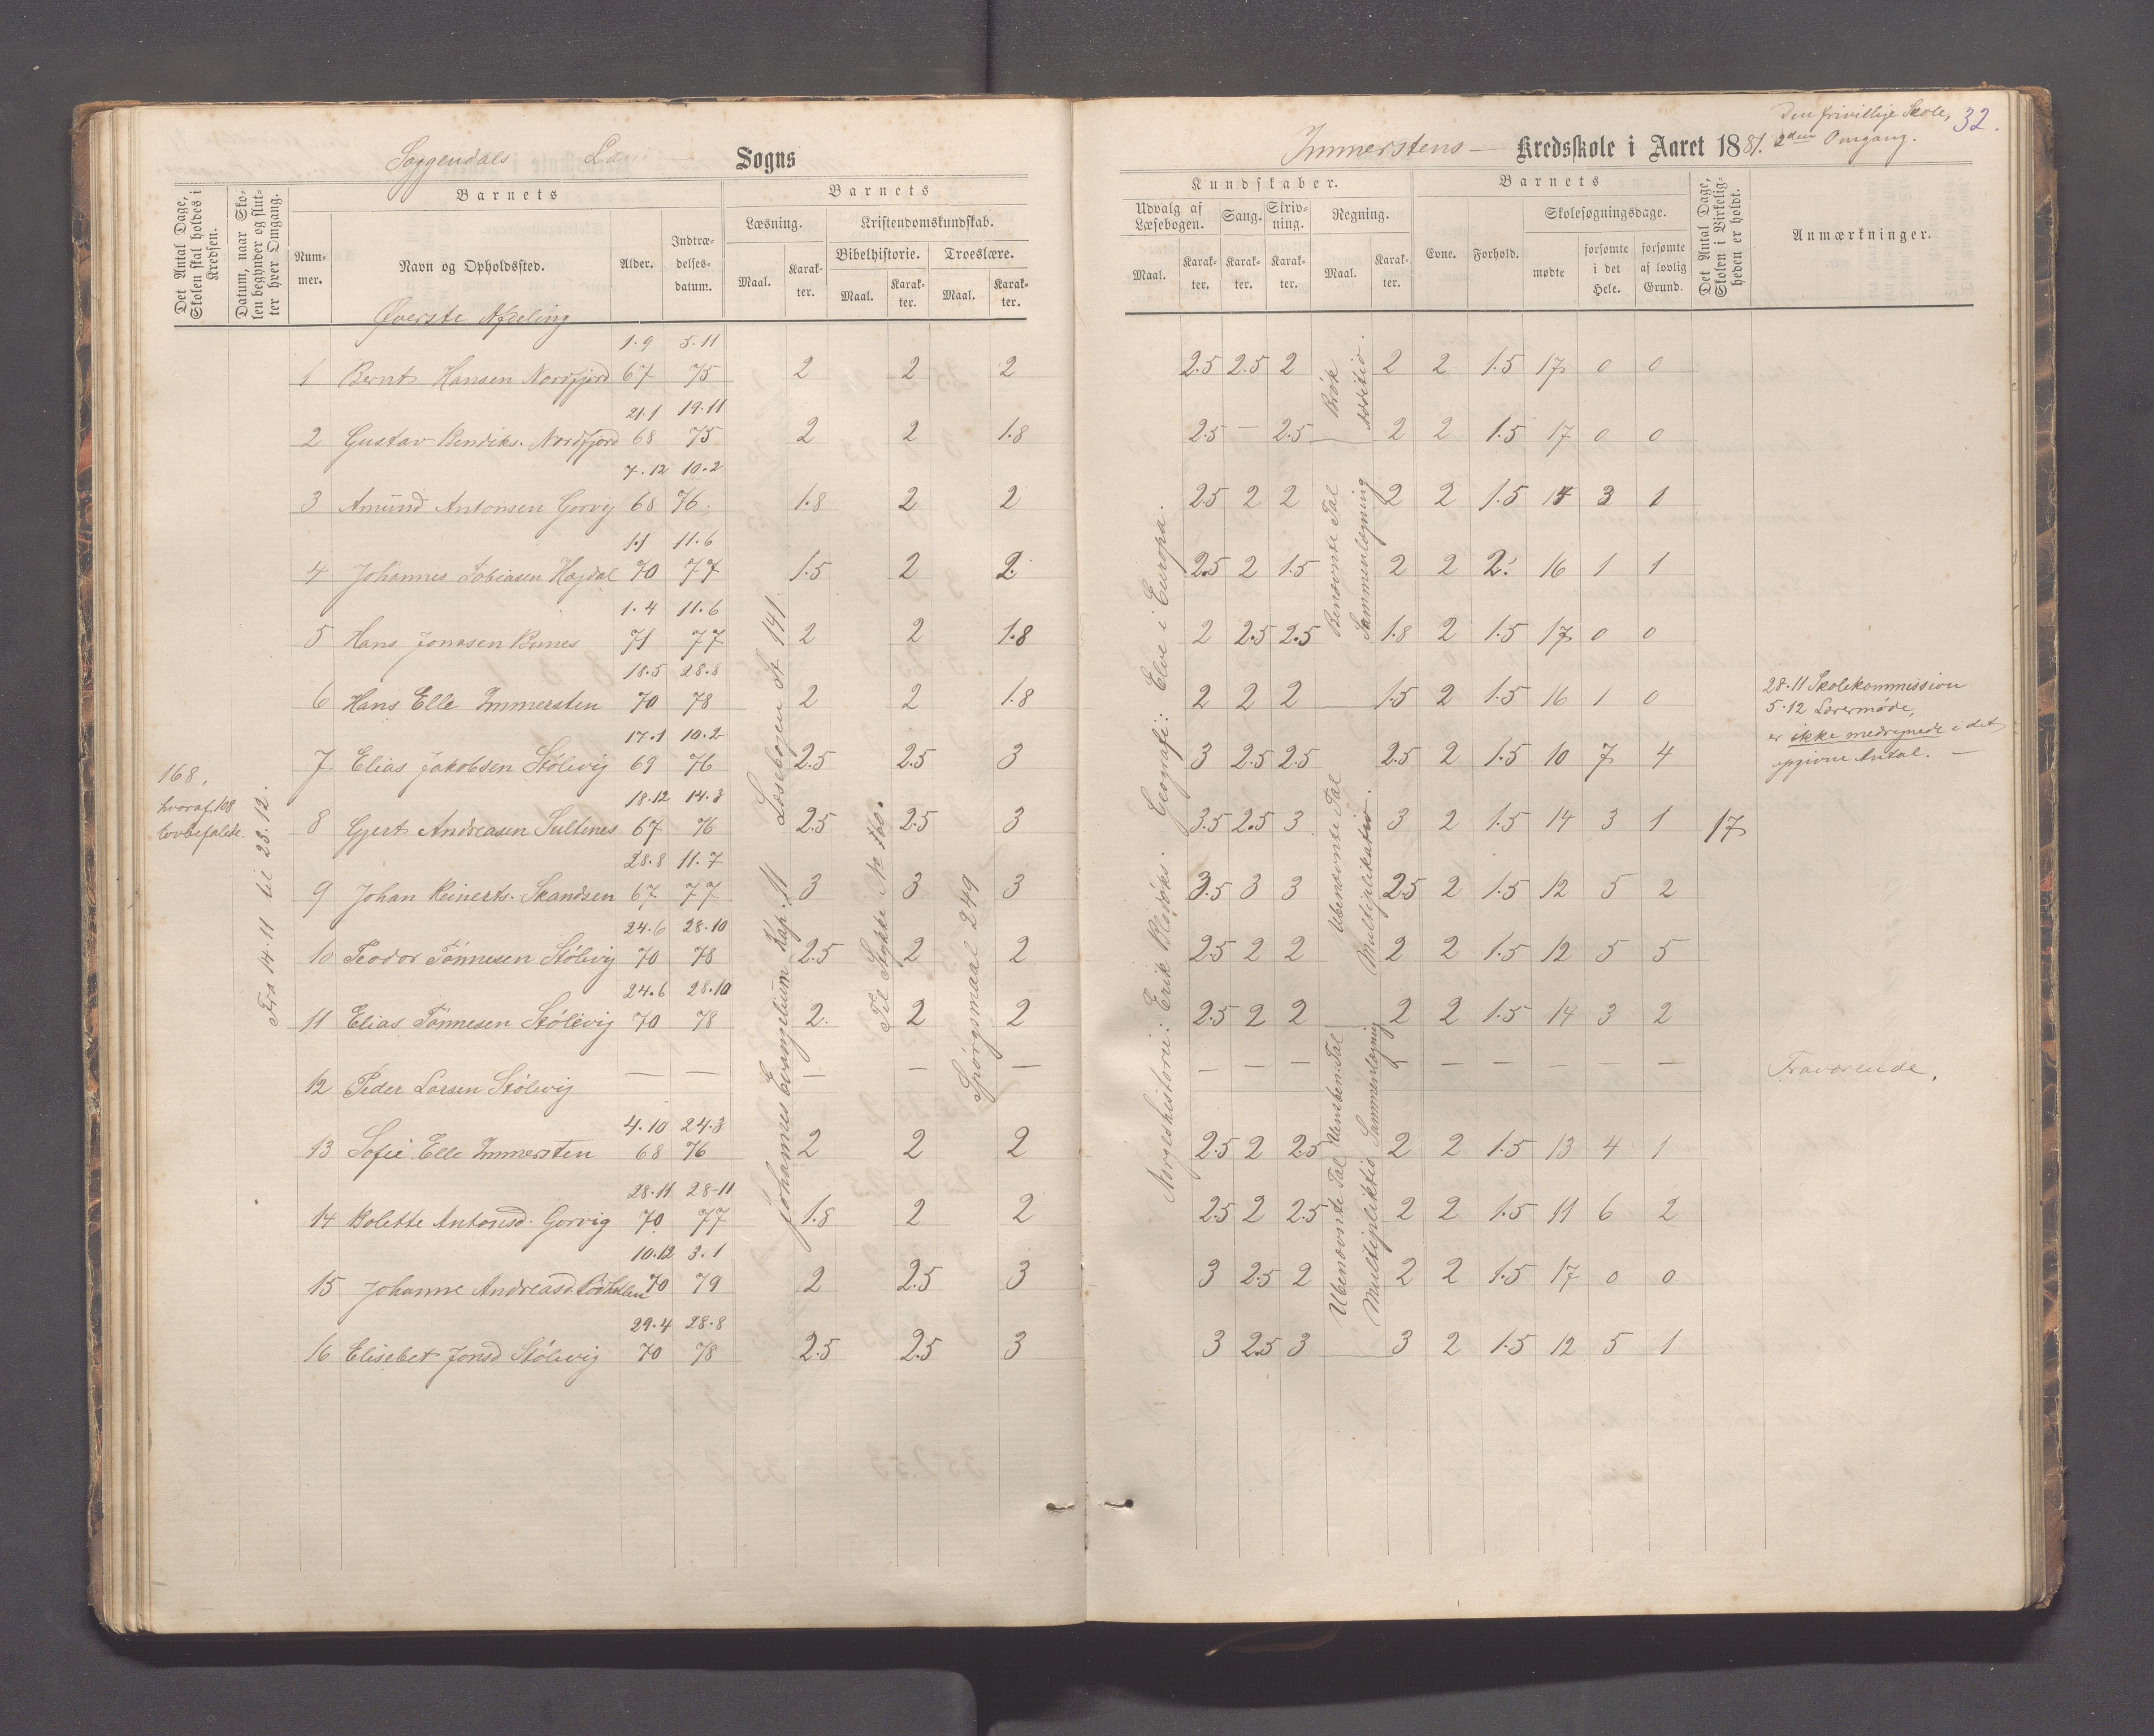 Soggendals Sogns
Det Antal Dage, Skolen skal holdes i Kredsen.
Datum, naar Skolen begynder og slutter hver Omgang.
Barnets
Nummer.
Navn og Opholdssted.
Alder.
Indtrædelsesdatum.
Barnets
Læsning.
Maal.
Karakter.
Kristendomskundskab.
Bibelhistorie.
Maal.
Karakter.
Troeslære.
Maal.
Karakter.
Øverste Afdeling
168,
hvoraf 108
lovbefalede.
Fra 14.11 til 23.12.
Johannes Evangelium Kap. 11 Læsebogen St 141.
Til Stykke No 160.
Spørgsmaal 249
1 Bernt Hansen Nordfjord 1.9 67 5.11 75 2 2 2
2 Gustav Bendiks. Nordfjord 21.1 68 19.11 75 2 2 1.8
3 Amund Antonsen Gorvig 7.12 68 10.2 76 1.8 2 2
4 Johannes Tobiasen Hogdal 1.1 70 11.6 77 1.5 2 2.
5 Hans Jonasen Bunes 1.4 71 11.6 77 2 2 1.8
6 Hans Elle Immersten 18.5 70 28.8 78 2 2 1.8
7 Elias Jakobsen Stølevig 17.1 69 10.2 76 2.5 2.5 3
8 Gjert Andreasen Sultenes 18.12 67 14.3 76 2.5 2.5 3
9 Johan Reinerts. Skandsen 28.8 67 11.7 77 3 3 3
10 Teodor Tønnesen Stølevig 24.6 70 28.10 78 2.5 2 2
11 Elias Tønnesen Stølevig 24.6 70 28.10 78 2. 2 2
12 Peder Larsen Stølevig — — — — —
13 Sofie Elle Immersten 4.10 68 24.3 76 2 2 2
14 Bolette Antonsd. Gorvig 28.11 70 28-11 77 1.8 2 2
15 Johanne Andreasd. 10.12 70 3.1 79 2 2.5 3
16 Elisebet Jonsd Stølevig 29.4 70 28.8 78 2.5 2.5 3
Immerstens — Kredsskole i Aaret 1881.
Den frivillige Skole,
2den Omgang.
32.
Kundskaber.
Udvalg af Læsebogen.
Maal.
Karakter.
Sang.
Karakter.
Skrivning.
Karakter.
Regning.
Maal.
Karakter.
Barnets
Evne.
Forhold.
Skolesøgningsdage.
mødte
forsømte i det Hele.
forsømte af lovlig Grund.
Det Antal Dage, Skolen i Virkeligheden er holdt.
Anmærkninger.
Norgeshistorie: Erik Blodøks. Geografi: Elve i Europa.
Brøk
Addition.
Benævnte Tal
Sammenlægning
Ubenævnte Tal
Multiplikation.
Sammenlægning
Ubenævnte Tal
2.5 2.5 2 2 2 1.5 17 0 0
2.5 — 2.5 2 2 1.5 17 0 0
2.5 2 2 2 2 1.5 14 3 1
2.5 2 1.5 2 2 2. 16 1 1
2 2.5 2.5 1.8 2 1.5 17 0 0
2 2 2 1.5 2 1.5 16 1 0
3 2.5 2.5 2.5 2 1.5 10 7 4
3.5 2.5 3 3 2 1.5 14 3 1 17
3.5 3 3 2.5 2 1.5 12 5 2
2.5 2 2 2 2 1.5 12 5 5
2.5 2 2 2 2 1.5 14 3 2
— — — — — — — — — Fraværende.
2.5 2 2.5 2 2 1.5 13 4 1
2.5 2 2.5 2 2 1.5 11 6 2
3 2.5 2 2 2 1.5 17 0 0
3 2.5 3 3 2 1.5 12 5 1
28.11 Skolekommission
5.12 Lærermøde,
er ikke medregnede i det
opgivne Antal. —